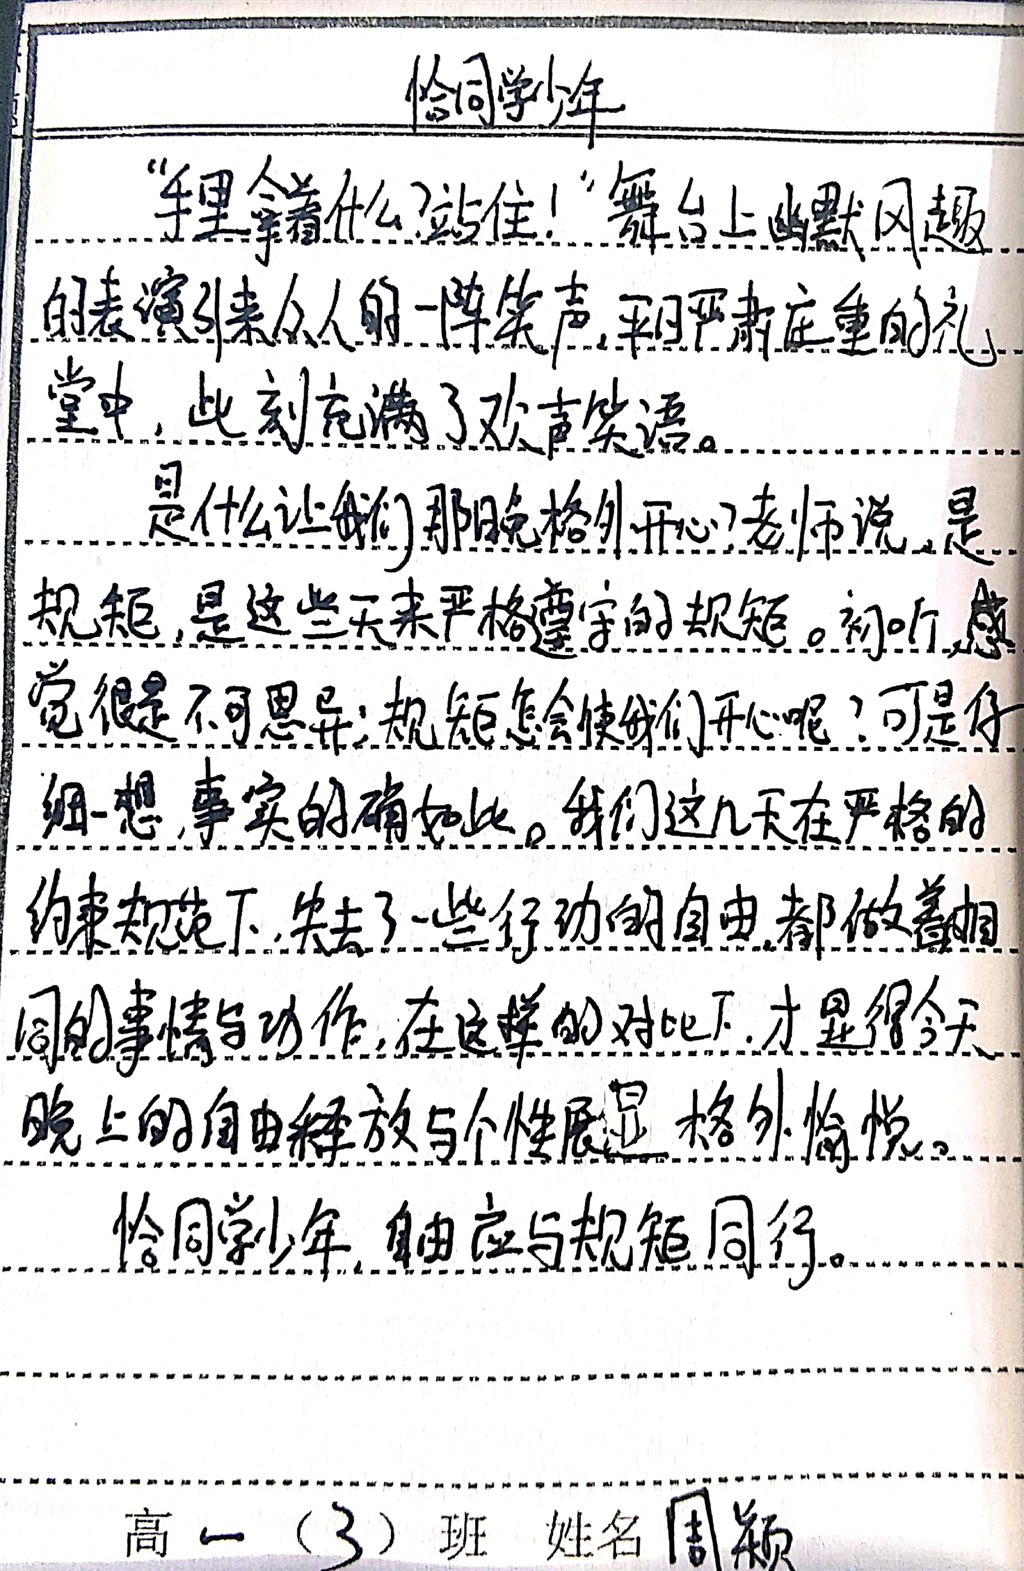 恰同学少年
“手里拿着什么?站住!”舞台上幽默风趣
的表演引来众人的一阵笑声,平日严肃庄重的礼
堂中,此刻充满了欢声笑语。
是什么让我们那晚格外开心?老师说,是
规矩,是这些天来严格遵守的规矩。初听,感
觉很是不可思异;规矩怎会使我们开心呢?可是仔
细一想,事实的确如此。我们这几天在严格的
约束规范下,失去了一些行动的自由,都做着相
同的事情与功作,在这样的对比下,才显得今天
晚上的自由释放与个性展显格外愉悦。
恰同学少年,自由应与规矩同行。
高一(3)班 姓名周颖